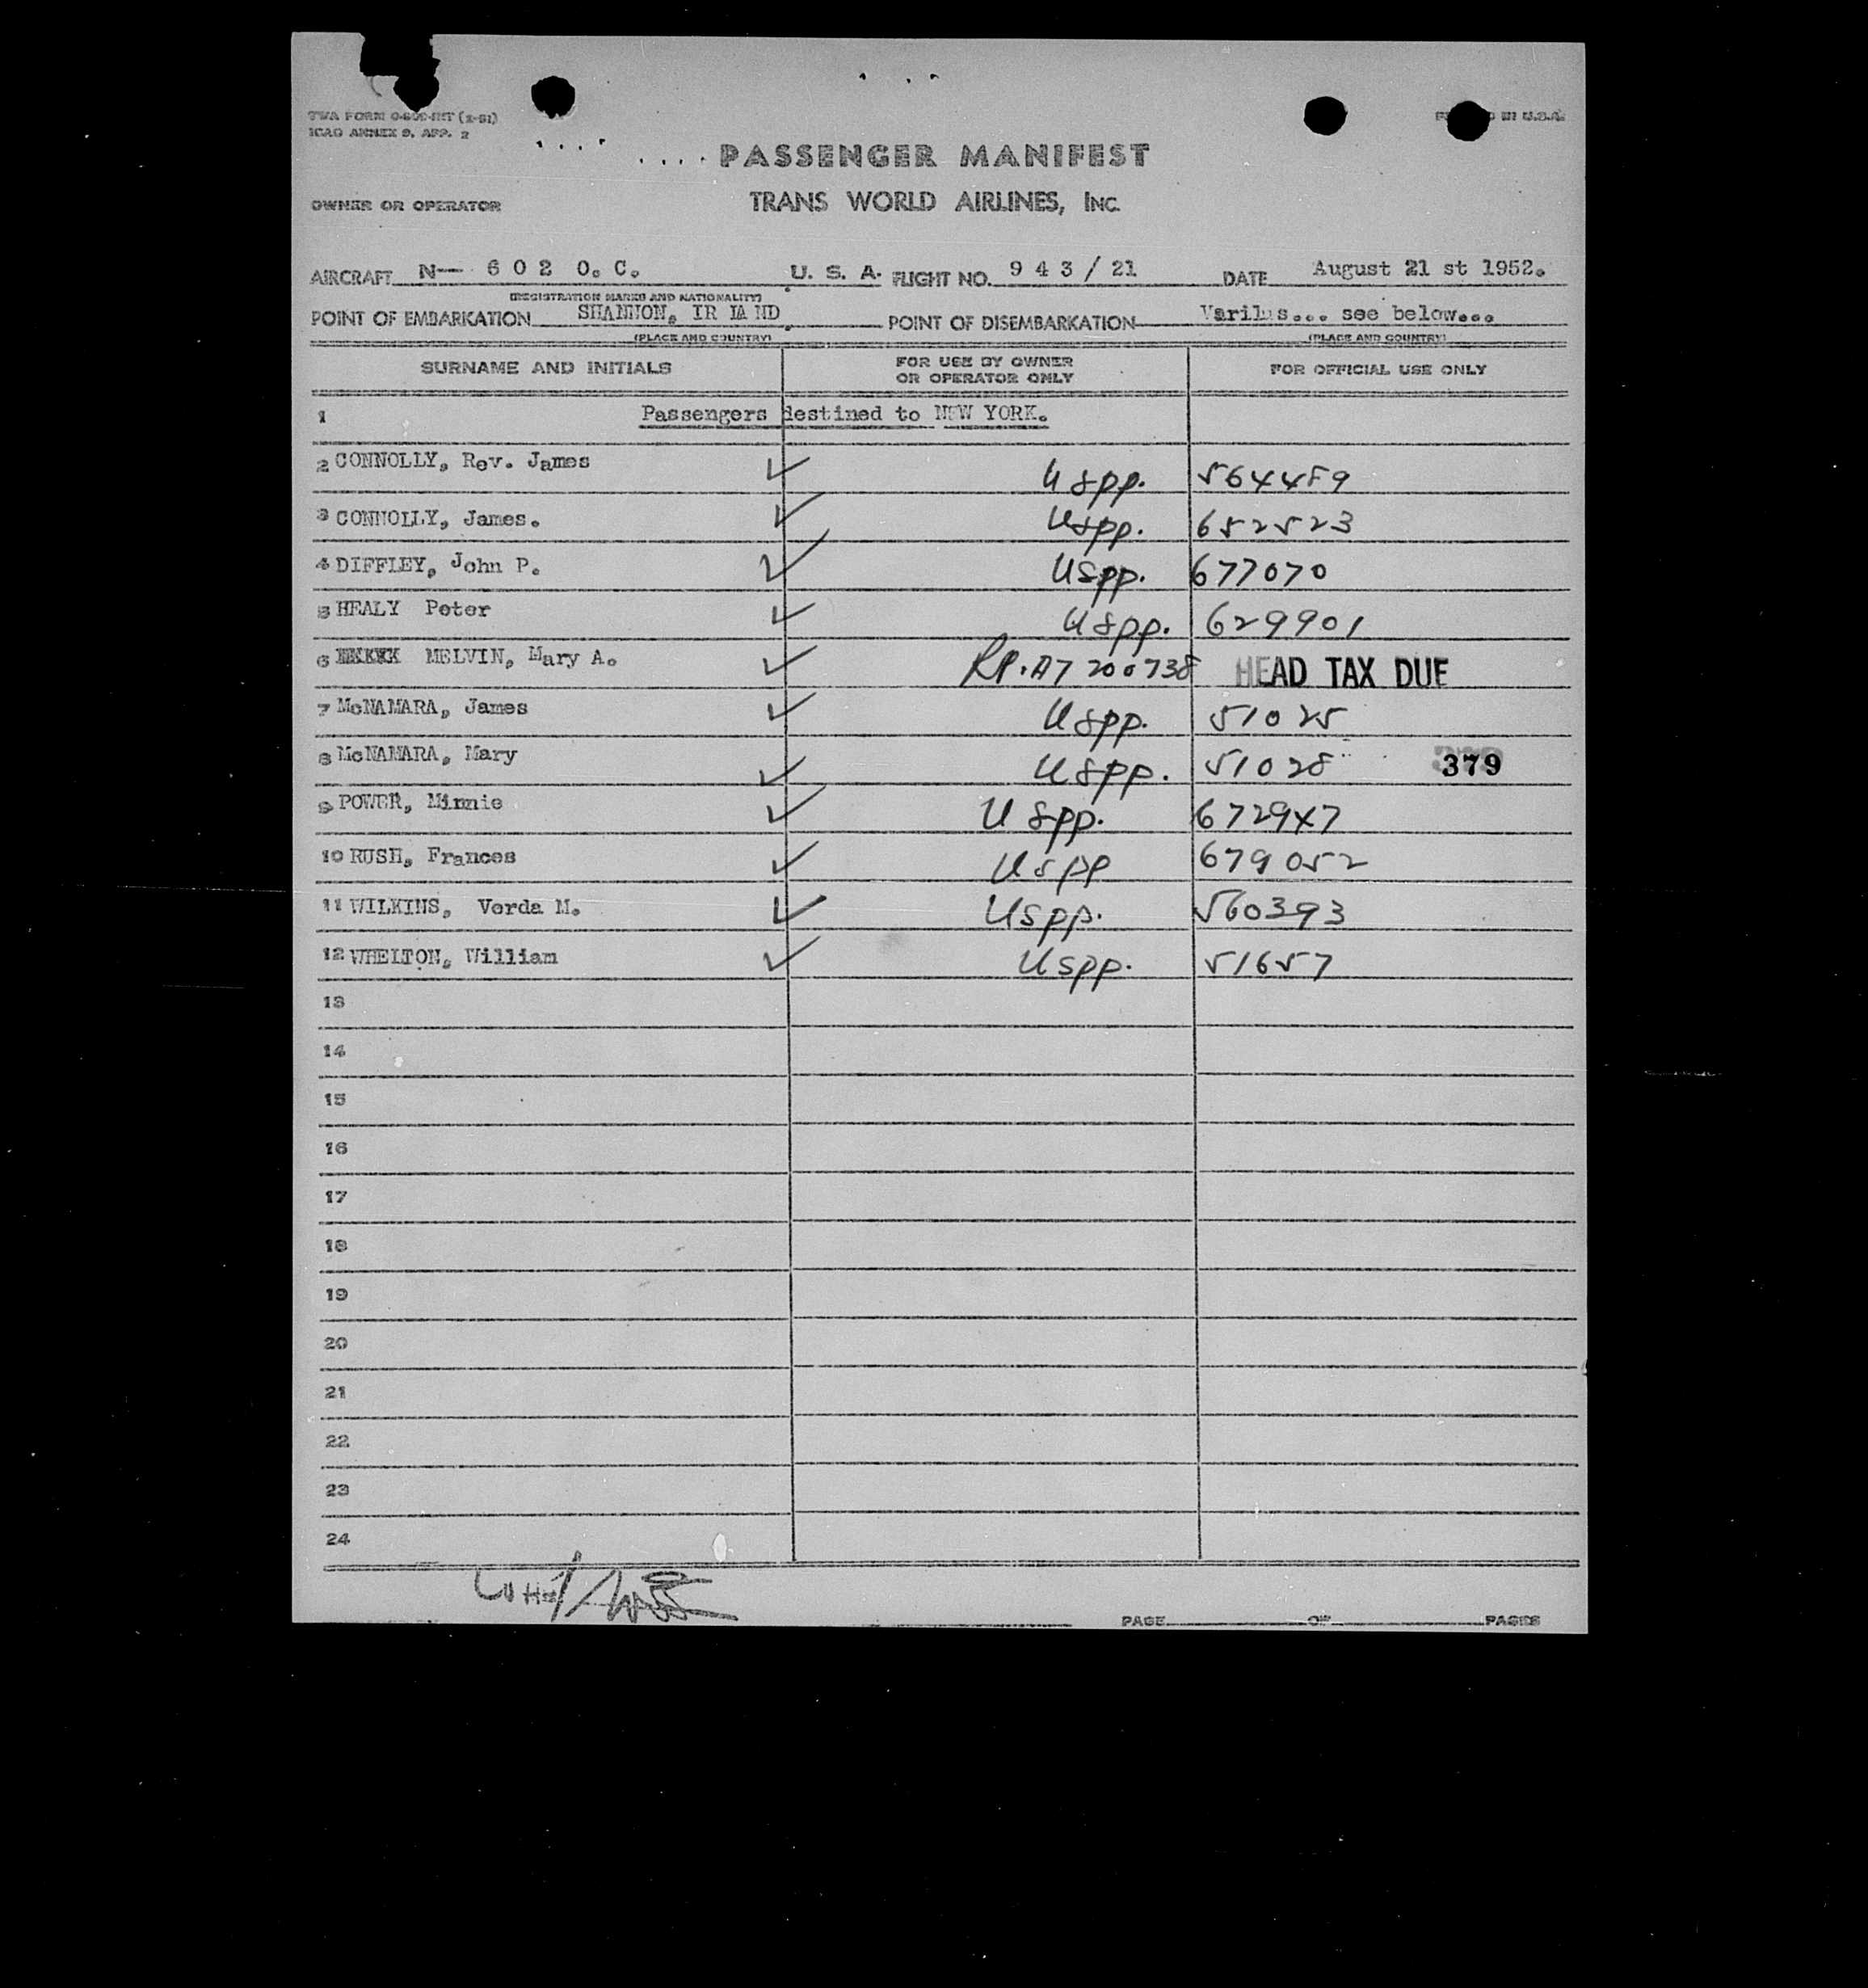 TWA FORM O-800-INT (2-51)
ICAO ANNEX 9, APP. 2
IN U.S.A.
PASSENGER MANIFEST
OWNER OR OPERATOR TRANS WORLD AIRLINES, INC.
AIRCRAFT N— 6 0 2 0. C. U. S. A. FLIGHT NO. 9 4 3 / 21 DATE August 21 st 1952.
(REGISTRATION MARKS AND NATIONALITY)
POINT OF EMBARKATION SHANNON, IR LA ND POINT OF DISEMBARKATION see below...
(PLACE AND COUNTRY) (PLACE AND COUNTRY)
SURNAME AND INITIALS FOR USE BY OWNER OR OPERATOR ONLY FOR OFFICIAL USE ONLY
1 Passengers destined to NEW YORK.
2 CONNOLLY, Rev. James ✓ U spp. 564489
3 CONNOLLY, James. ✓ Uspp. 652523
4 DIFFLEY, John P. ✓ USpp. 677070
5 HEALY Peter ✓ U spp. 629901
6 MELVIN, Mary A. ✓ RP. A7 200738 HEAD TAX DUE
7 McNAMARA, James ✓ U spp. 51025
8 McNAMARA, Mary ✓ U spp. 51028 379
9 POWER, Minnie ✓ U Spp. 672947
10 RUSH, Frances ✓ U spp 679052
11 WILKINS, Verda M. ✓ USpp. 560393
12 WHELTON, William ✓ USpp. 51657
13
14
15
16
17
18
19
20
21
22
23
24
PAGE OF PAGES